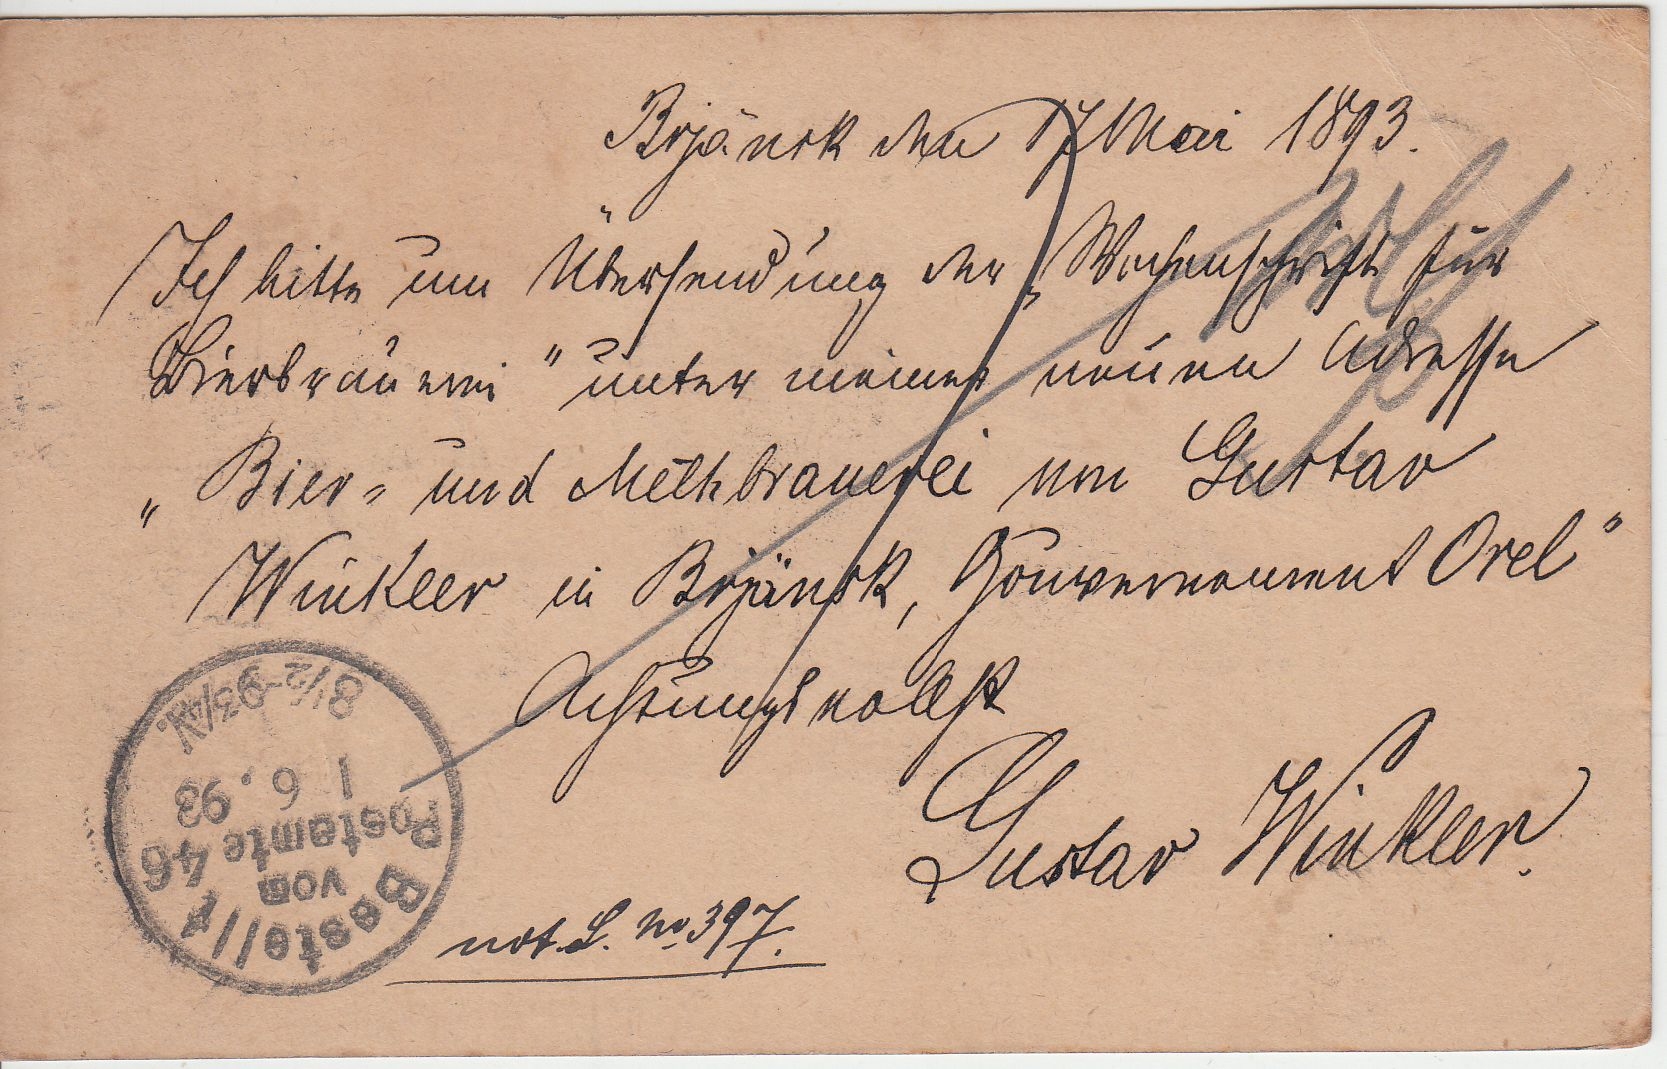 Brjänsk den 17 Mai 1893.
Ich bitte um Übersendung der „Wochenschrift für
Bierbrauerei" unter meiner neuen Adresse
„Bier- und Methbrauerei von Gustav
Winkler in Brjänsk, Gouvernement Orel"
Achtungsvollst
Gustav Winkler.
not. L. No 397.
Bestellt
vom
Postamte 46
1 6. 93
8½-93/4 N.